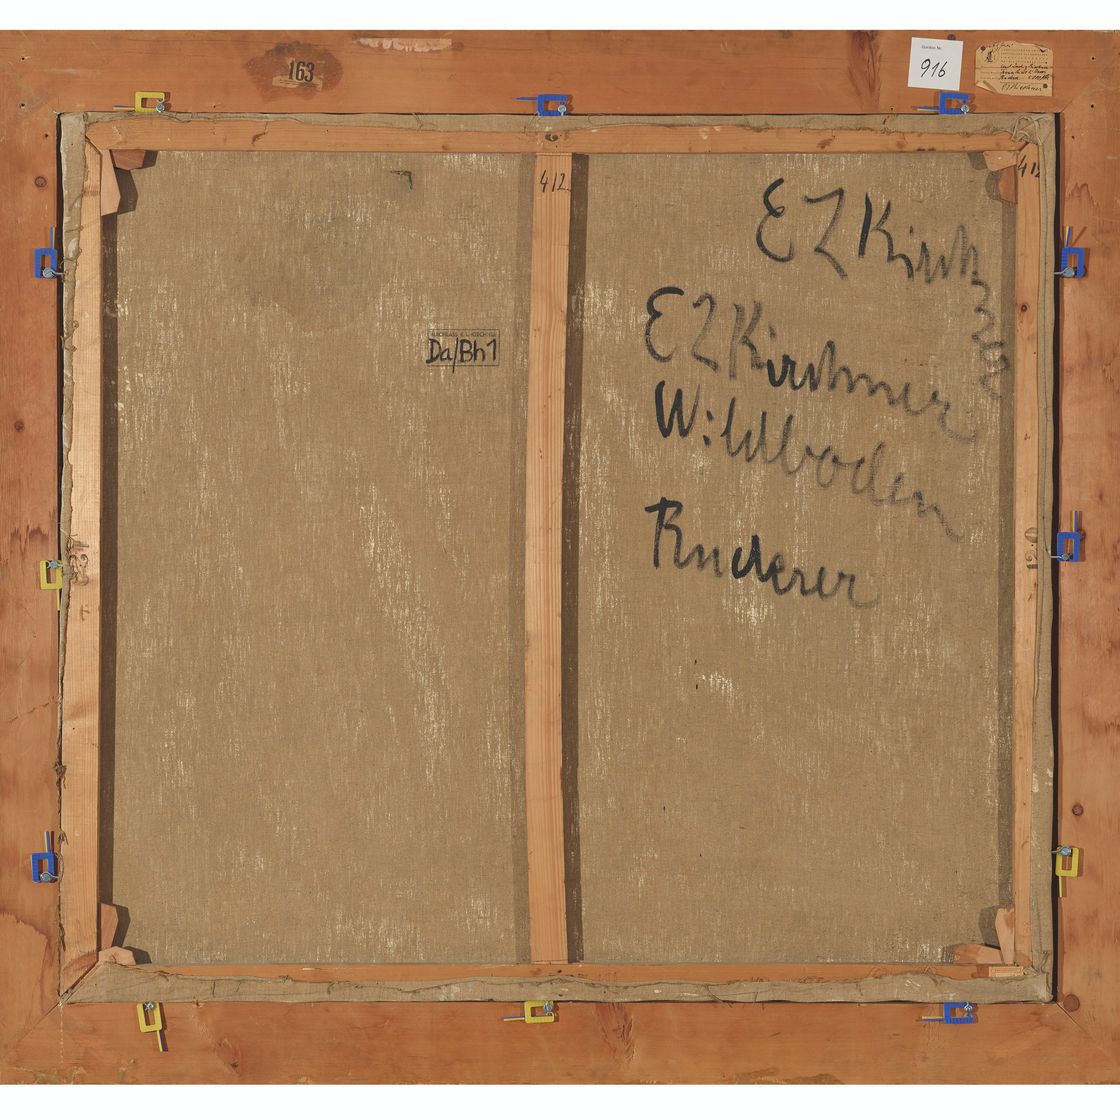 163
916
412
412
E L Kirchner
E L Kirchner
Wildboden
Ruderer
NACHLASS E. L. KIRCHNER
Da/Bh 1